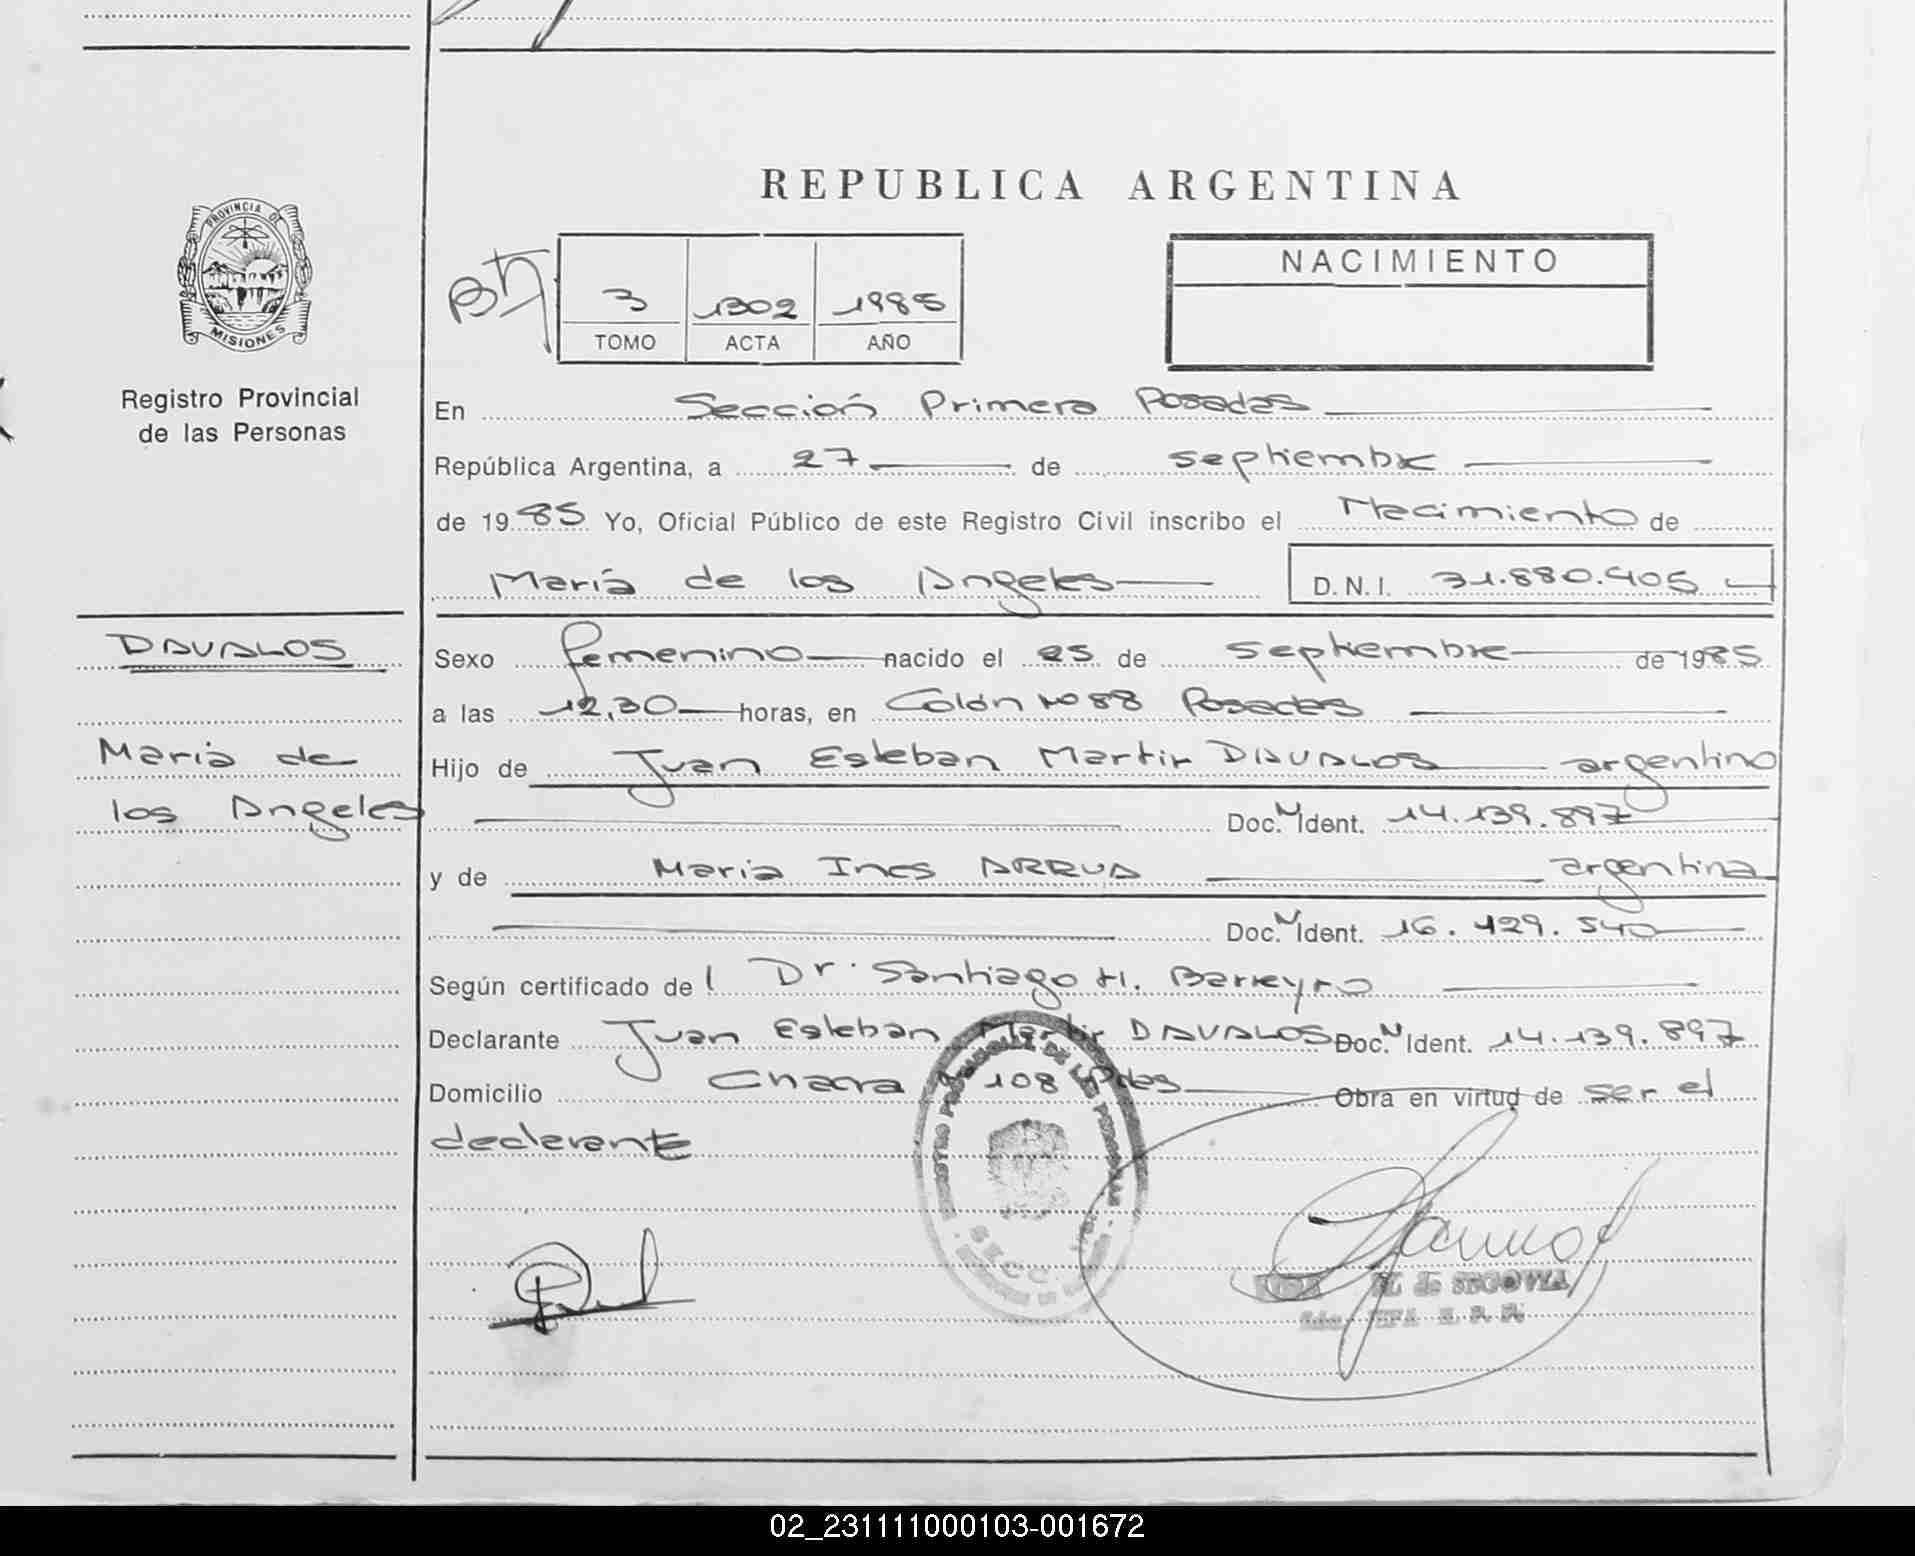 REPUBLICA ARGENTINA
PROVINCIA DE
MISIONES
Registro Provincial
de las Personas
3 1302 1985
TOMO ACTA AÑO
NACIMIENTO
En Sección Primera Posadas
República Argentina, a 27 de septiembre
de 1985 Yo, Oficial Público de este Registro Civil inscribo el Nacimiento de
María de los Angeles D.N.I. 31.880.405
DAVALOS
Sexo femenino nacido el 25 de septiembre de 1985
a las 12,30 horas, en Colón Nº 88 Posadas
María de
los Angeles
Hijo de Juan Esteban Martin DAVALOS argentino
Doc. N Ident. 14.139.897
y de Maria Ines ARRUA argentina
Doc. N Ident. 16.429.540
Según certificado de l Dr. Santiago H. Barreyro
Declarante Juan Esteban Martin DAVALOS Doc. N Ident. 14.139.897
Domicilio Chacra 108 Pdas Obra en virtud de ser el
declarante
REGISTRO PROVINCIAL DE LAS PERSONAS
SECC.
de SEGOVIA
02_231111000103-001672